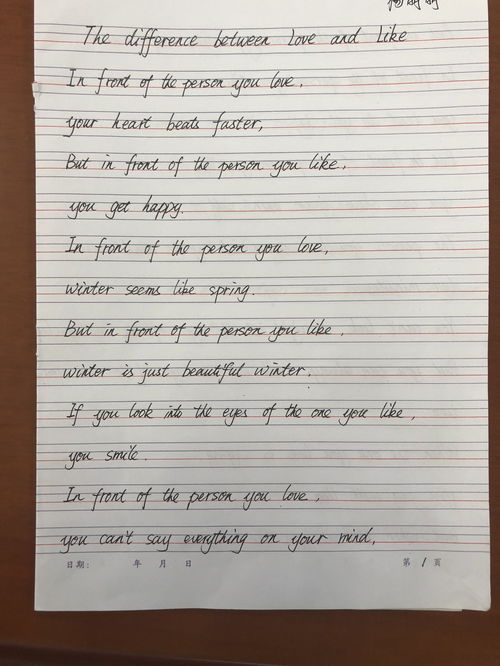 The difference between Love and Like
In front of the person you love,
your heart beats faster,
But in front of the person you like,
you get happy.
In front of the person you love,
winter seems like spring.
But in front of the person you like,
winter is just beautiful winter.
If you look into the eyes of the one you like,
you smile.
In front of the person you love,
you can't say everything on your mind,
日期: 年 月 日 第 1 页